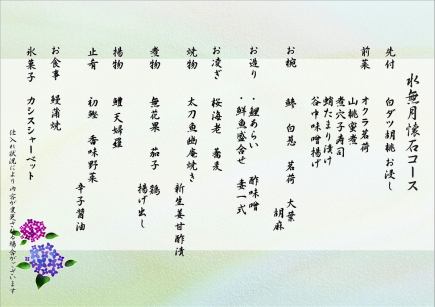 水無月懐石コース
先付　白ダツ胡桃お浸し
前菜　オクラ茗荷
山桃蜜煮
煮穴子寿司
蛸たまり漬け
谷中味噌揚げ
お椀　鱧　白葱　茗荷　大葉
胡麻
お造り　・鯉あらい　酢味噌
・鮮魚盛合せ　妻一式
お凌ぎ　桜海老　蕎麦
焼物　太刀魚幽庵焼き
新生姜甘酢漬
煮物　無花果　茄子　鶏
揚げ出し
揚物　鱧天婦羅
止肴　初鰹　香味野菜
辛子醤油
お食事　鰻蒲焼
氷菓子　カシスシャーベット
仕入れ状況により内容が変更になる場合がございます